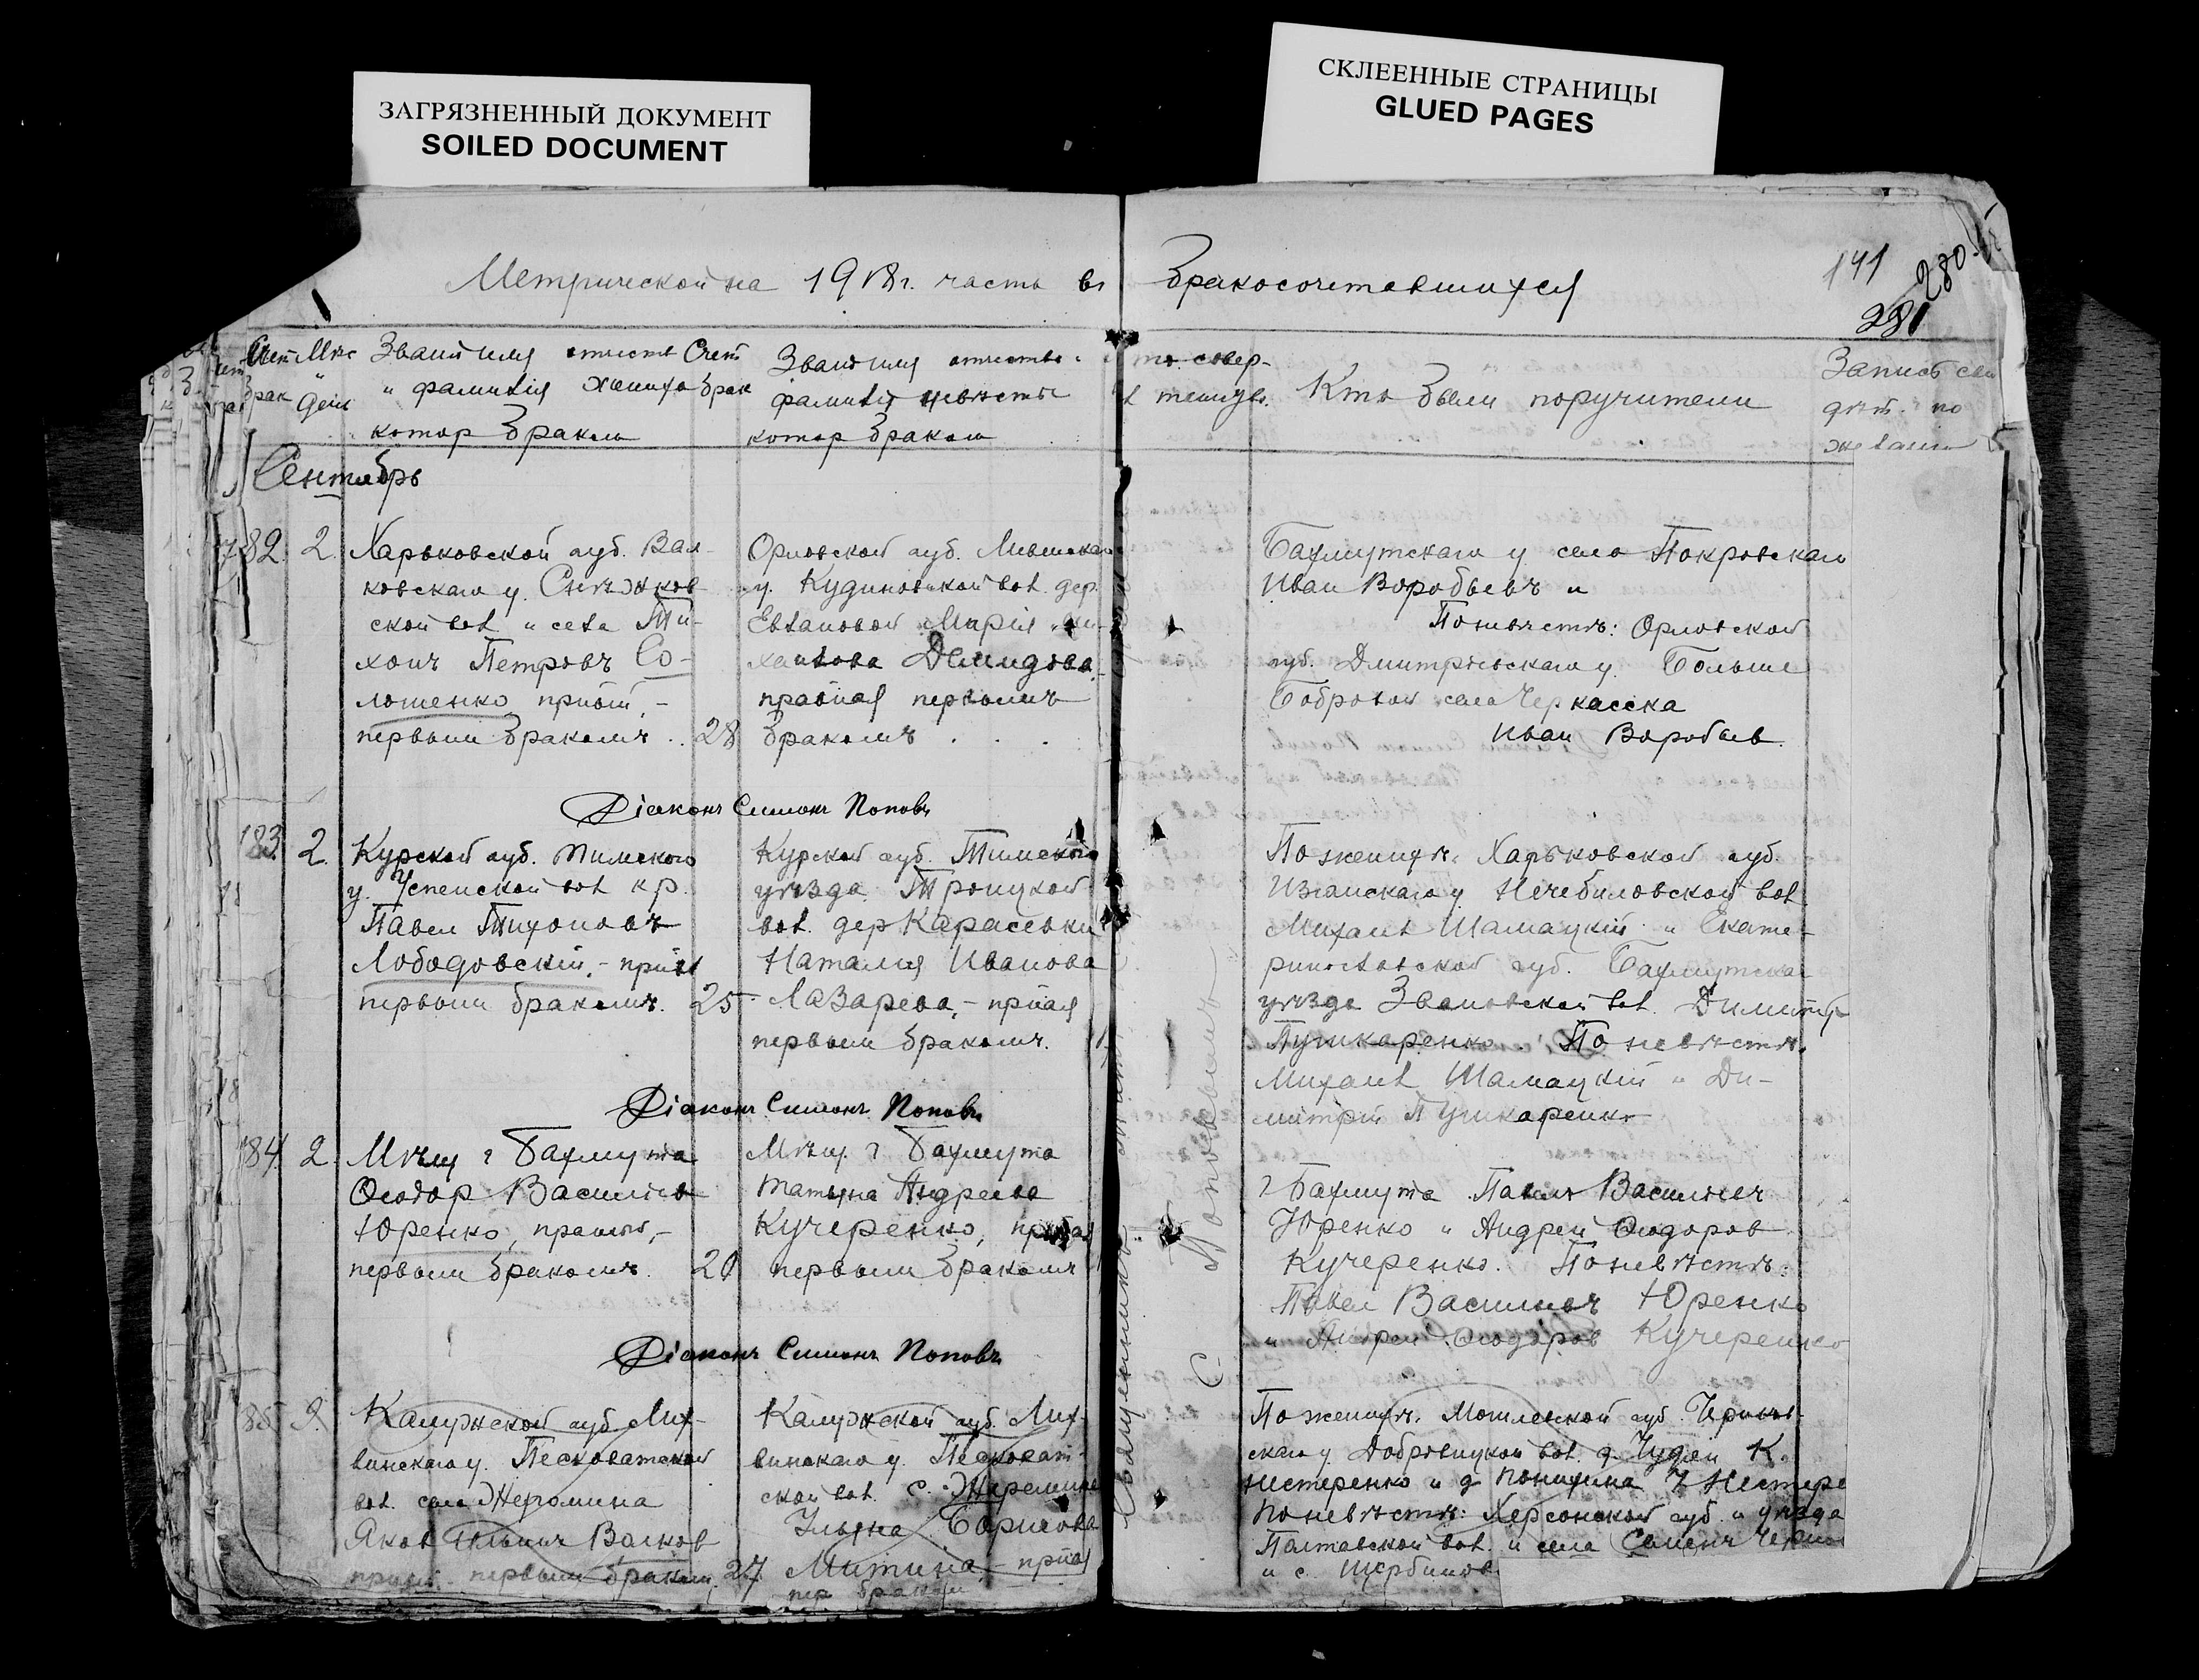 ЗАГРЯЗНЕННЫЙ ДОКУМЕНТ
SOILED DOCUMENT
СКЛЕЕННЫЕ СТРАНИЦЫ
GLUED PAGES
Метрической на 1918 г. часть
бракосочетавшихся
141
280
281
Счет
брак
Мѣс
день
Званіе имя отчеств
и фамилія жениха
котор браком
Счет
брак
Званіе имя отчество
фамилія невѣсты
котор браком
совер-
Кто были поручители
Запись
по
Сентябрь
182. 2.
Харьковской губ. Вал-
ковскаго у. Снѣжков
ской вол и села Ти-
хонъ Петровъ Со-
лошенко
первымъ бракомъ . . 28
Орловской губ. Ливенскаго
у. Кудиновской вол. дер.
Евлановой Марія Ми-
хайлова Демидова
правная первымъ
бракомъ
Бахмутскаго у села Покровскаго
Иван Воробьевъ и
По невѣстѣ: Орловской
губ. Дмитровскаго у. Больше
Бобровой села Черкасска
Иван Воробьев.
Діаконъ Симонъ Поповъ
183. 2.
Курской губ. Тимского
у. Успенской вол кр.
Павел Тихоновъ
Лободовскій
первымъ бракомъ. 25
Курской губ. Тимского
уѣзда Троицкой
вол. дер Карасевки
Наталия Иванова
Лазарева, -
первым бракомъ.
По женихѣ. Харьковской губ.
Изюмскаго у Нечебиловской вол.
Михаил Шамацкій и Екате-
ринославской губ. Бахмутскаго
уѣзда Звановской вол. Димитр
Пушкаренко. По невѣстѣ.
Михаил Шамацкій и Ди-
митрій Пушкаренко
Діаконъ Симонъ Поповъ
184. 2.
Мѣщ г Бахмута
Ѳеодор Васильев
Юренко,
первым бракомъ. 20
Мѣщ. г Бахмута
Татьяна Андреева
Кучеренко,
первым бракомъ
г Бахмута Павел Васильевъ
Юренко и Андрей Ѳеодоров
Кучеренко. По невѣстѣ:
Павел Васильевъ Юренко
и Андрей Ѳеодоров Кучеренко
Діаконъ Симонъ Поповъ
185 9.
Калужской губ Лих-
винскаго у. Песковатской
вол. села Жеремина
Яков Ильичъ Волков
первым браком. 27
Калужской губ. Лих-
винскаго у. Песковат-
ской вол. с. Жеремина
Ульяна Борисова
Митина, -
пер браком
По женихѣ. Могилевской губ. Чериков-
скаго у. вол. д. К.
Нестеренко и д
По невѣстѣ: Херсонской губ. и уѣзда
Полтавской вол. и села Семенъ
и с. Щербинов
Священникъ
С. Поповымъ